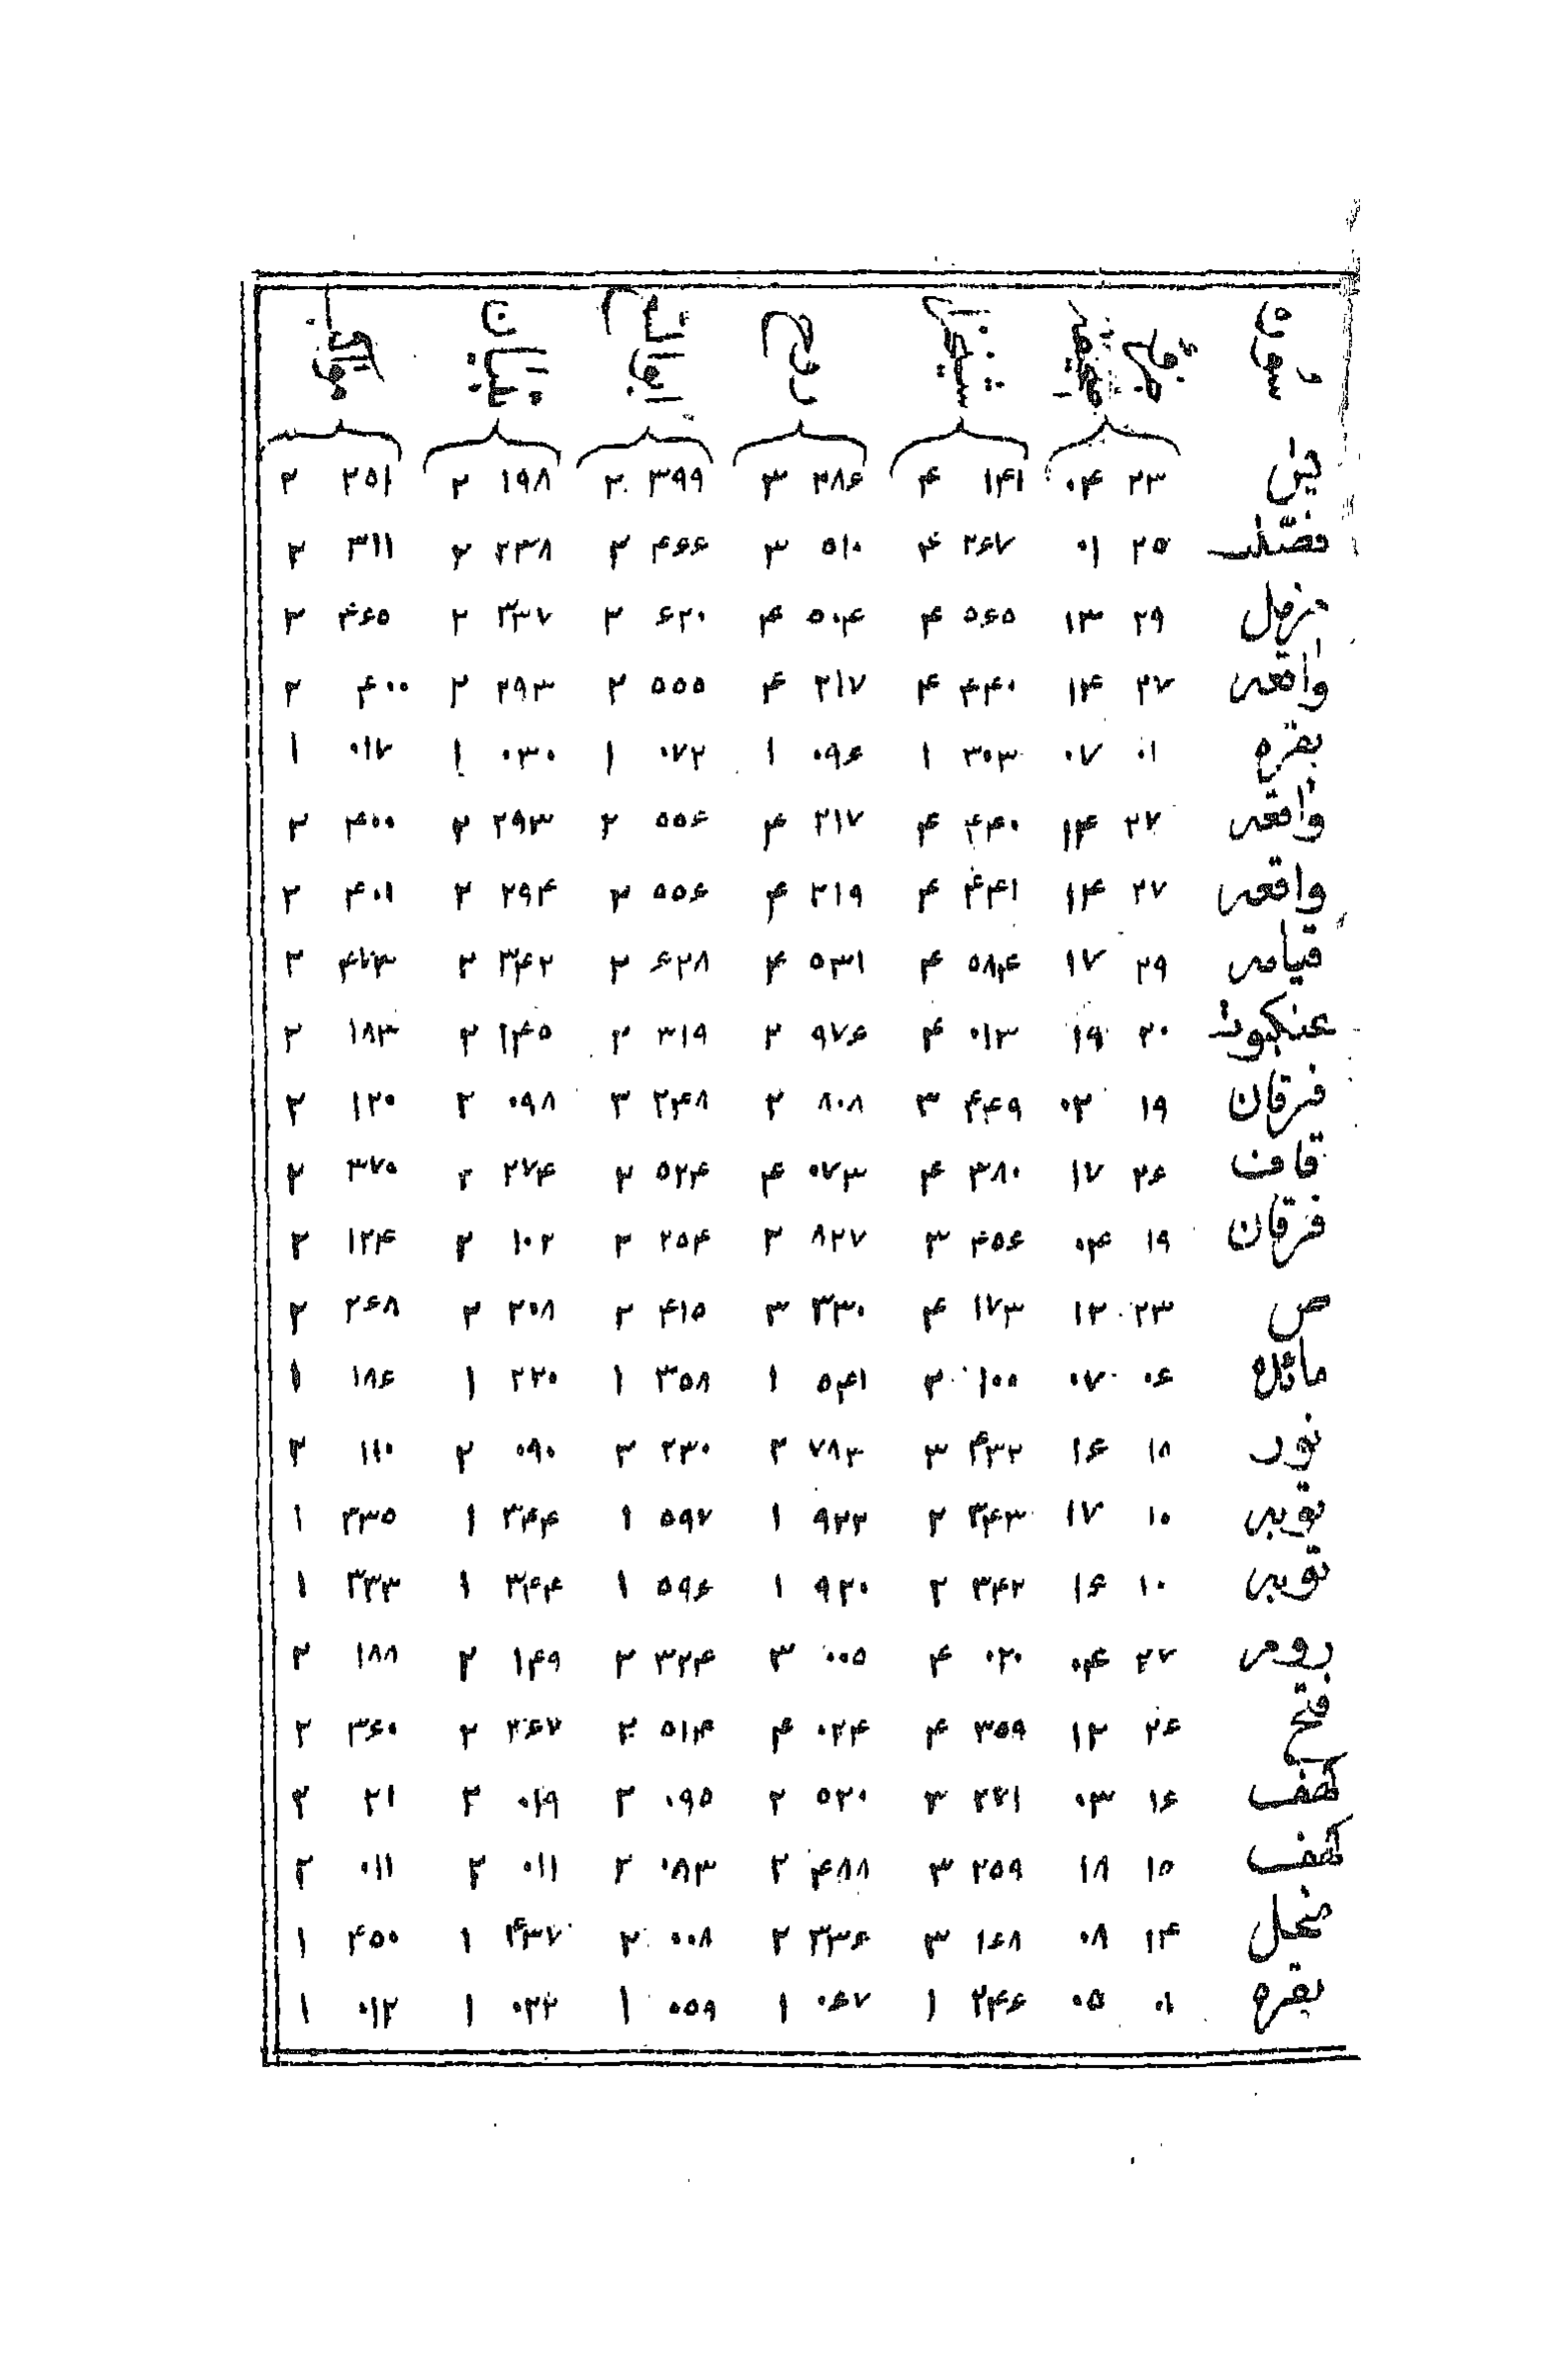 يس ۲۳ ۰۴ ۱۴۱ ۴ ۲۸۶ ۳ ۳۹۹ ۲ ۱۹۸ ۲ ۲۵۱ ۲
فصّلت ۲۵ ۰۱ ۲۶۷ ۴ ۵۱۰ ۳ ۴۶۶ ۲ ۲۳۸ ۲ ۳۱۱ ۲
مزمل ۲۹ ۱۳ ۵۶۵ ۴ ۵۰۴ ۴ ۶۲۰ ۲ ۳۳۷ ۲ ۴۶۵ ۲
واقعه ۲۷ ۱۴ ۴۴۰ ۴ ۲۱۷ ۴ ۵۵۵ ۲ ۲۹۳ ۲ ۴۰۰ ۲
بقره ۰۱ ۰۷ ۳۰۳ ۱ ۰۹۶ ۱ ۰۷۲ ۱ ۰۳۰ ۱ ۰۱۷ ۱
واقعه ۲۷ ۱۴ ۴۴۰ ۴ ۲۱۷ ۴ ۵۵۶ ۲ ۲۹۳ ۲ ۴۰۰ ۲
واقعه ۲۷ ۱۴ ۴۴۱ ۴ ۲۱۹ ۴ ۵۵۶ ۲ ۲۹۴ ۲ ۴۰۱ ۲
قيامه ۲۹ ۱۷ ۵۸۴ ۴ ۵۳۱ ۴ ۶۲۸ ۲ ۳۴۲ ۲ ۴۷۳ ۲
عنكبوت ۲۰ ۱۹ ۰۱۳ ۴ ۹۷۶ ۲ ۳۱۹ ۲ ۱۴۵ ۲ ۱۸۳ ۲
فرقان ۱۹ ۰۳ ۴۴۹ ۳ ۸۰۸ ۲ ۲۴۸ ۲ ۰۹۸ ۲ ۱۲۰ ۲
قاف ۲۶ ۱۷ ۳۸۰ ۴ ۰۷۳ ۴ ۵۲۴ ۲ ۲۷۴ ۲ ۳۷۰ ۲
فرقان ۱۹ ۰۴ ۴۵۶ ۳ ۸۲۷ ۲ ۲۵۴ ۲ ۱۰۲ ۲ ۱۲۴ ۲
ص ۲۳ ۱۲ ۱۷۳ ۴ ۳۳۰ ۳ ۴۱۵ ۲ ۲۰۸ ۲ ۲۶۸ ۲
مائده ۰۶ ۰۷ ۱۰۰ ۲ ۵۴۱ ۱ ۳۵۸ ۱ ۲۲۰ ۱ ۱۸۶ ۱
نور ۱۸ ۱۶ ۴۳۲ ۳ ۷۸۲ ۲ ۲۳۰ ۲ ۰۹۰ ۲ ۱۱۰ ۲
توبه ۱۰ ۱۷ ۳۴۳ ۲ ۹۲۲ ۱ ۵۹۷ ۱ ۳۴۴ ۱ ۳۳۵ ۱
توبه ۱۰ ۱۶ ۳۴۲ ۲ ۹۲۰ ۱ ۵۹۶ ۱ ۳۴۴ ۱ ۳۳۳ ۱
روم ۲۷ ۰۴ ۰۲۰ ۴ ۰۰۵ ۳ ۳۲۴ ۲ ۱۴۹ ۲ ۱۸۸ ۲
فتح ۲۶ ۱۲ ۳۵۹ ۴ ۰۲۴ ۴ ۵۱۴ ۲ ۲۶۷ ۲ ۳۶۰ ۲
كهف ۱۶ ۰۳ ۲۷۱ ۳ ۵۲۰ ۲ ۰۹۵ ۲ ۰۱۹ ۲ ۲۱ ۲
كهف ۱۵ ۱۸ ۲۵۹ ۳ ۴۸۸ ۲ ۰۸۳ ۲ ۰۱۱ ۲ ۰۱۱ ۲
نحل ۱۴ ۰۸ ۱۶۸ ۳ ۲۳۶ ۲ ۰۰۸ ۲ ۴۳۷ ۱ ۴۵۰ ۱
بقره ۰۱ ۰۵ ۲۴۶ ۱ ۰۶۷ ۱ ۰۵۹ ۱ ۰۲۲ ۱ ۰۱۲ ۱